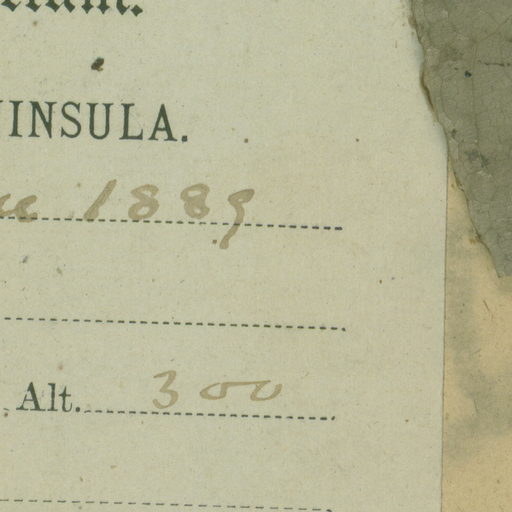 NINSULA.
1889
Alt. 300